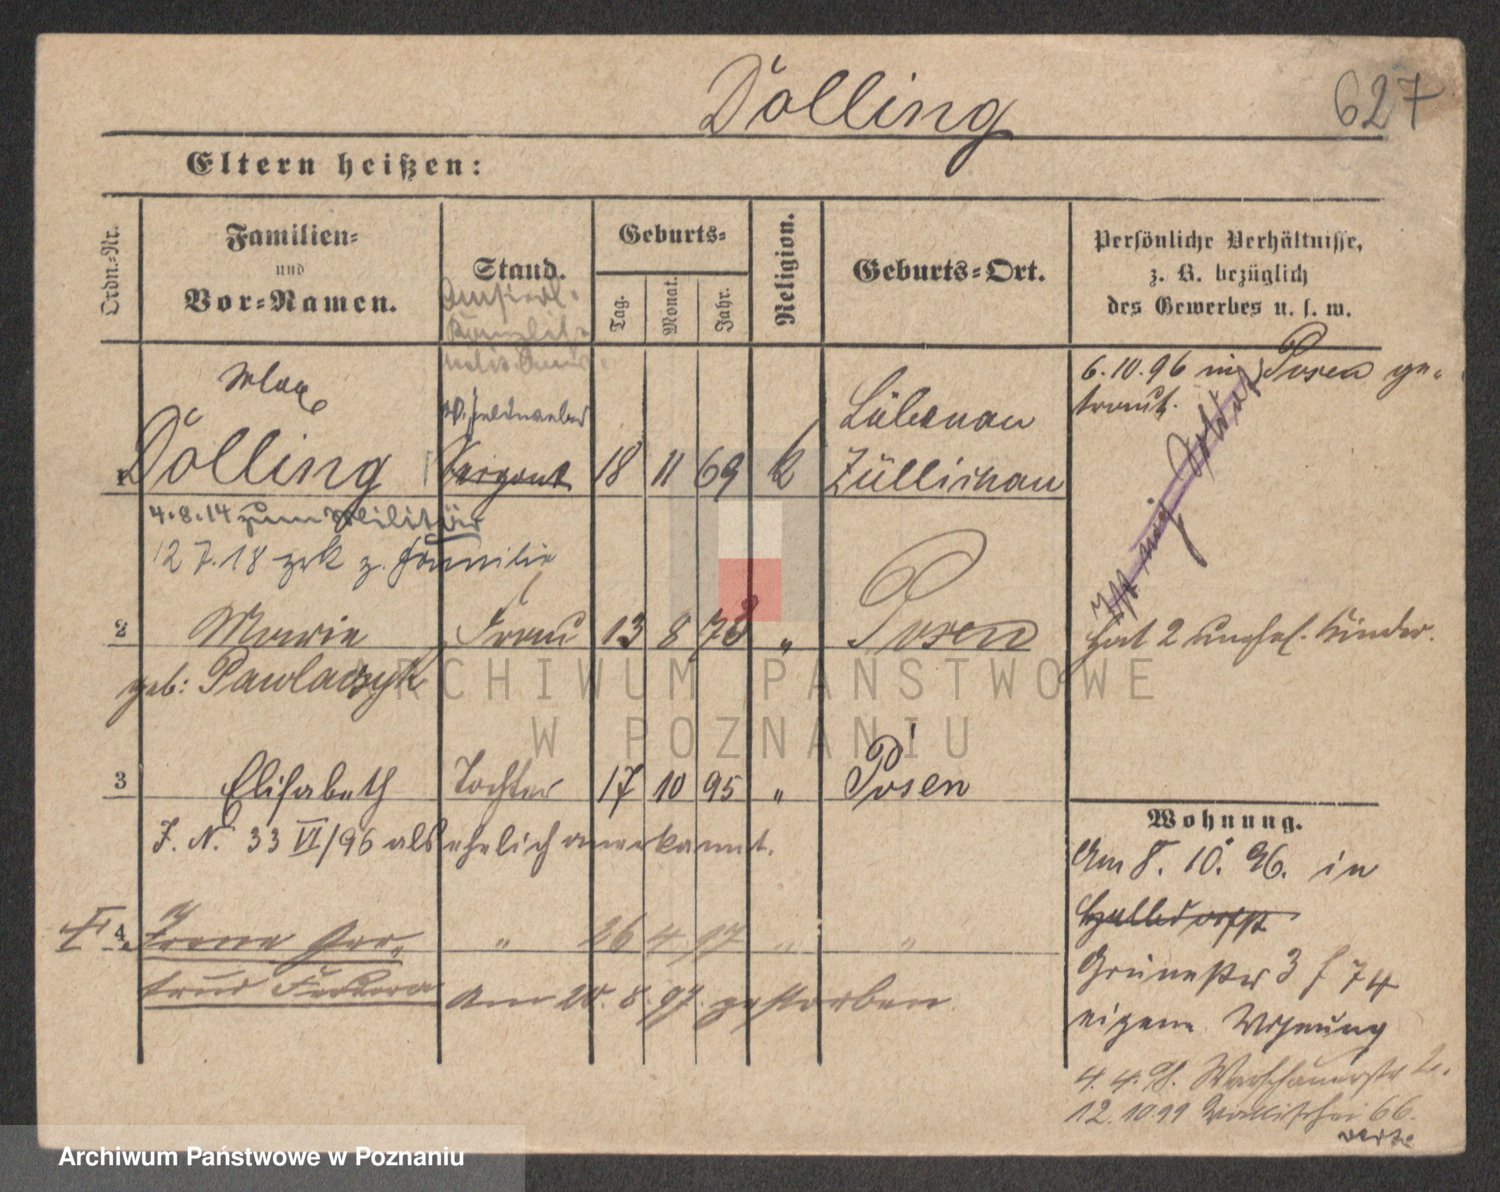 Dolling
627
Eltern heißen:
Ordn.-Nr.
Familien-
und
Vor-Namen.
Stand.
Geburts-
Tag.
Monat.
Jahr.
Religion.
Geburts-Ort.
Persönliche Verhältnisse,
z. B. bezüglich
des Gewerbes u. s. w.
Max
1 Dolling Sergant 18 11 69 k Züllichau
Lübenau
6.10.96 in Posen ge-
traut.
4.8.14 zum Militär
12 7.18 zrk z. Familie
Ist nicht Soldat
2 Marie Frau 13 8 73 " Posen
geb: Pawlaczyk
hat 2 unehel. Kinder.
3 Elisabeth Tochter 17 10 95 " Posen
J. N. 33 VI/96 als ehelich anerkannt.
4 Irene Ger- " 26 4 97 " "
trud Fedora am 20.8.97. gestorben
Wohnung.
Am 8. 10. 96. in
Grünestr 3 f 74
eigene Wohnung
4.4.98. Warschauerstr
12.1099 Wallischei 66.
verte
ARCHIWUM PAŃSTWOWE
W POZNANIU
Archiwum Państwowe w Poznaniu